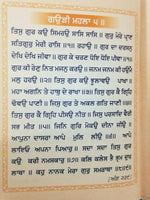 ਗਉੜੀ ਮਹਲਾ ੫ ॥
ਤਿਸੁ ਗੁਰ ਕਉ ਸਿਮਰਉ ਸਾਸਿ ਸਾਸਿ ॥ ਗੁਰੁ ਮੇਰੇ ਪ੍ਰਾਣ
ਸਤਿਗੁਰੁ ਮੇਰੀ ਰਾਸਿ ॥੧॥ ਰਹਾਉ ॥ ਗੁਰ ਕਾ ਦਰਸਨੁ
ਦੇਖਿ ਦੇਖਿ ਜੀਵਾ ॥ ਗੁਰ ਕੇ ਚਰਣ ਧੋਇ ਧੋਇ ਪੀਵਾ ॥੧॥
ਗੁਰ ਕੀ ਰੇਣੁ ਨਿਤ ਮਜਨੁ ਕਰਉ ॥ ਜਨਮ ਜਨਮ ਕੀ ਹਉਮੈ
ਮਲੁ ਹਰਉ ॥੨॥ ਤਿਸੁ ਗੁਰ ਕਉ ਝੂਲਾਵਉ ਪਾਖਾ ॥
ਮਹਾ ਅਗਨਿ ਤੇ ਹਾਥੁ ਦੇ ਰਾਖਾ ॥੩॥ ਤਿਸੁ ਗੁਰ ਕੈ ਗ੍ਰਿਹਿ
ਢੋਵਉ ਪਾਣੀ ॥ ਜਿਸੁ ਗੁਰ ਤੇ ਅਕਲ ਗਤਿ ਜਾਣੀ ॥੪॥
ਤਿਸੁ ਗੁਰ ਕੈ ਗ੍ਰਿਹਿ ਪੀਸਉ ਨੀਤ ॥ ਜਿਸੁ ਪਰਸਾਦਿ ਵੈਰੀ
ਸਭ ਮੀਤ ॥੫॥ ਜਿਨਿ ਗੁਰਿ ਮੋ ਕਉ ਦੀਨਾ ਜੀਉ ॥
ਆਪੁਨਾ ਦਾਸਰਾ ਆਪੇ ਮੁਲਿ ਲੀਉ ॥੬॥ ਆਪੇ
ਲਾਇਓ ਅਪਨਾ ਪਿਆਰੁ ॥ ਸਦਾ ਸਦਾ ਤਿਸੁ ਗੁਰ
ਕਉ ਕਰੀ ਨਮਸਕਾਰੁ ॥੭॥ ਕਲਿ ਕਲੇਸ ਭੈ ਭ੍ਰਮ ਦੁਖ
ਲਾਥਾ ॥ ਕਹੁ ਨਾਨਕ ਮੇਰਾ ਗੁਰੁ ਸਮਰਾਥਾ ॥੮॥੯॥
(ਅੰਗ ੨੩੯)